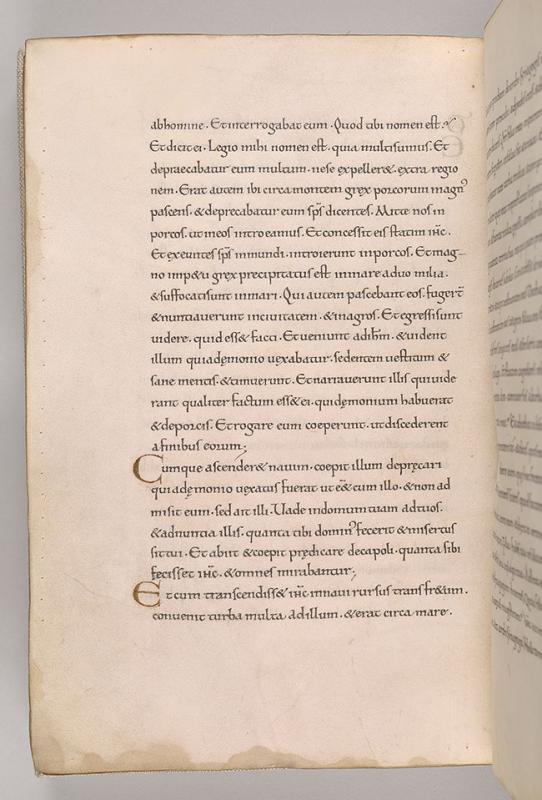 abhomine. Et interrogabat eum. Quod tibi nomen est?
Et dicit ei. Legio mihi nomen est. quia multi sumus. Et
depraecabatur eum multum. ne se expeller&. extra regio
nem. Erat autem ibi circa montem grex porcorum magn᾿
pascens. & deprecabatur eum sps̄ dicentes. Mitte nos in
porcos. ut in eos introeamus. Et concessit eis statim ihc̄.
Et exeuntes sps̄ inmundi. introierunt in porcos. Et mag-
no imp&u grex precipitatus est in mare ad duo milia.
& suffocati sunt in mari. Qui autem pascebant eos. fugerт̄
& nuntiaverunt in civitatem. & in agros. Et egressi sunt
videre. quid ess& facti. Et veniunt ad ihm̄. & vident
illum qui a dęmonio vexabatur. sedentem vestitum &
sane mentis. & timuerunt. Et narraverunt illis qui vide
rant qualiter factum ess& ei. qui dęmonium habuerat
& de porcis. Et rogare eum coeperunt. ut discederent
a finibus eorum;
Cumque ascender& navim. coepit illum depręcari
qui a dęmonio vexatus fuerat ut eēt cum illo. & non ad
misit eum. sed ait illi. Vade in domum tuam ad tuos.
& adnuntia illis. quanta tibi domin᾿ fecerit & misertus
sit tui. Et abiit & coepit prędicare decapoli. quanta sibi
fecisset ihc̄. & omnes mirabantur;
Et cum transcendiss& ihc̄ in navi rursus trans fr&um.
convenit turba multa ad illum. & erat circa mare.